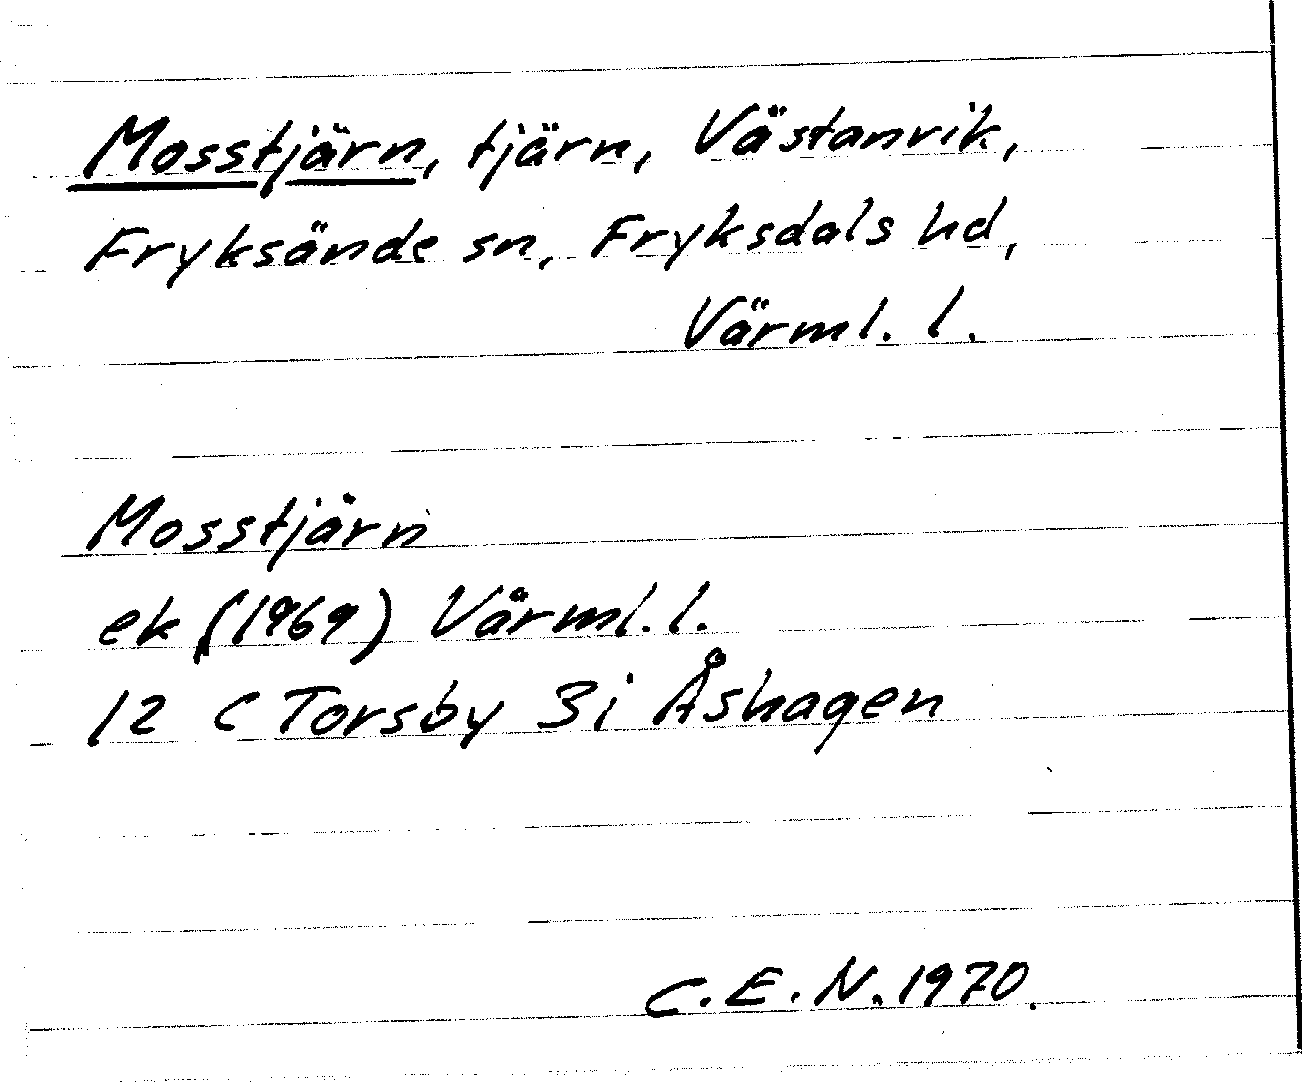 Mosstjärn, tjärn, Västanvik,
Fryksände sn, Fryksdals hd,
Värml. l.
Mosstjärn
ek (1969) Värml. l.
12 C Torsby 3i Åshagen
C. E. N. 1970.